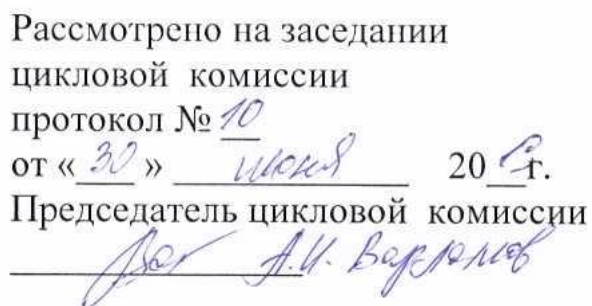 Рассмотрено на заседании
цикловой комиссии
протокол № 10
от «30» июня 20 г.
Председатель цикловой комиссии
А.И. Варламов